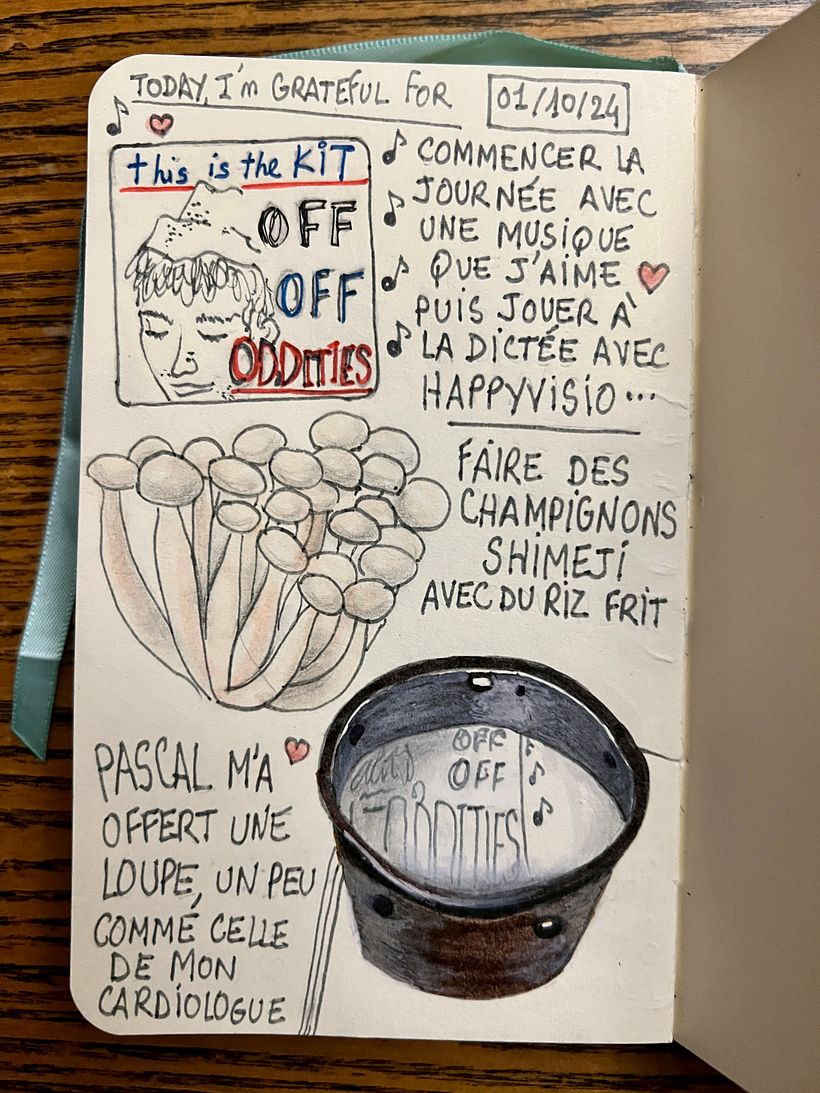 TODAY, I'm GRATEFUL FOR
01/10/24
this is the KiT
OFF
OFF
ODDITIES
COMMENCER LA
JOURNÉE AVEC
UNE MUSIQUE
QUE J'AIME
PUIS JOUER À
LA DICTÉE AVEC
HAPPYVISIO...
FAIRE DES
CHAMPIGNONS
SHIMEJI
AVEC DU RIZ FRIT
PASCAL M'A
OFFERT UNE
LOUPE, UN PEU
COMME CELLE
DE MON
CARDIOLOGUE
OFF
OFF
ODDITIES